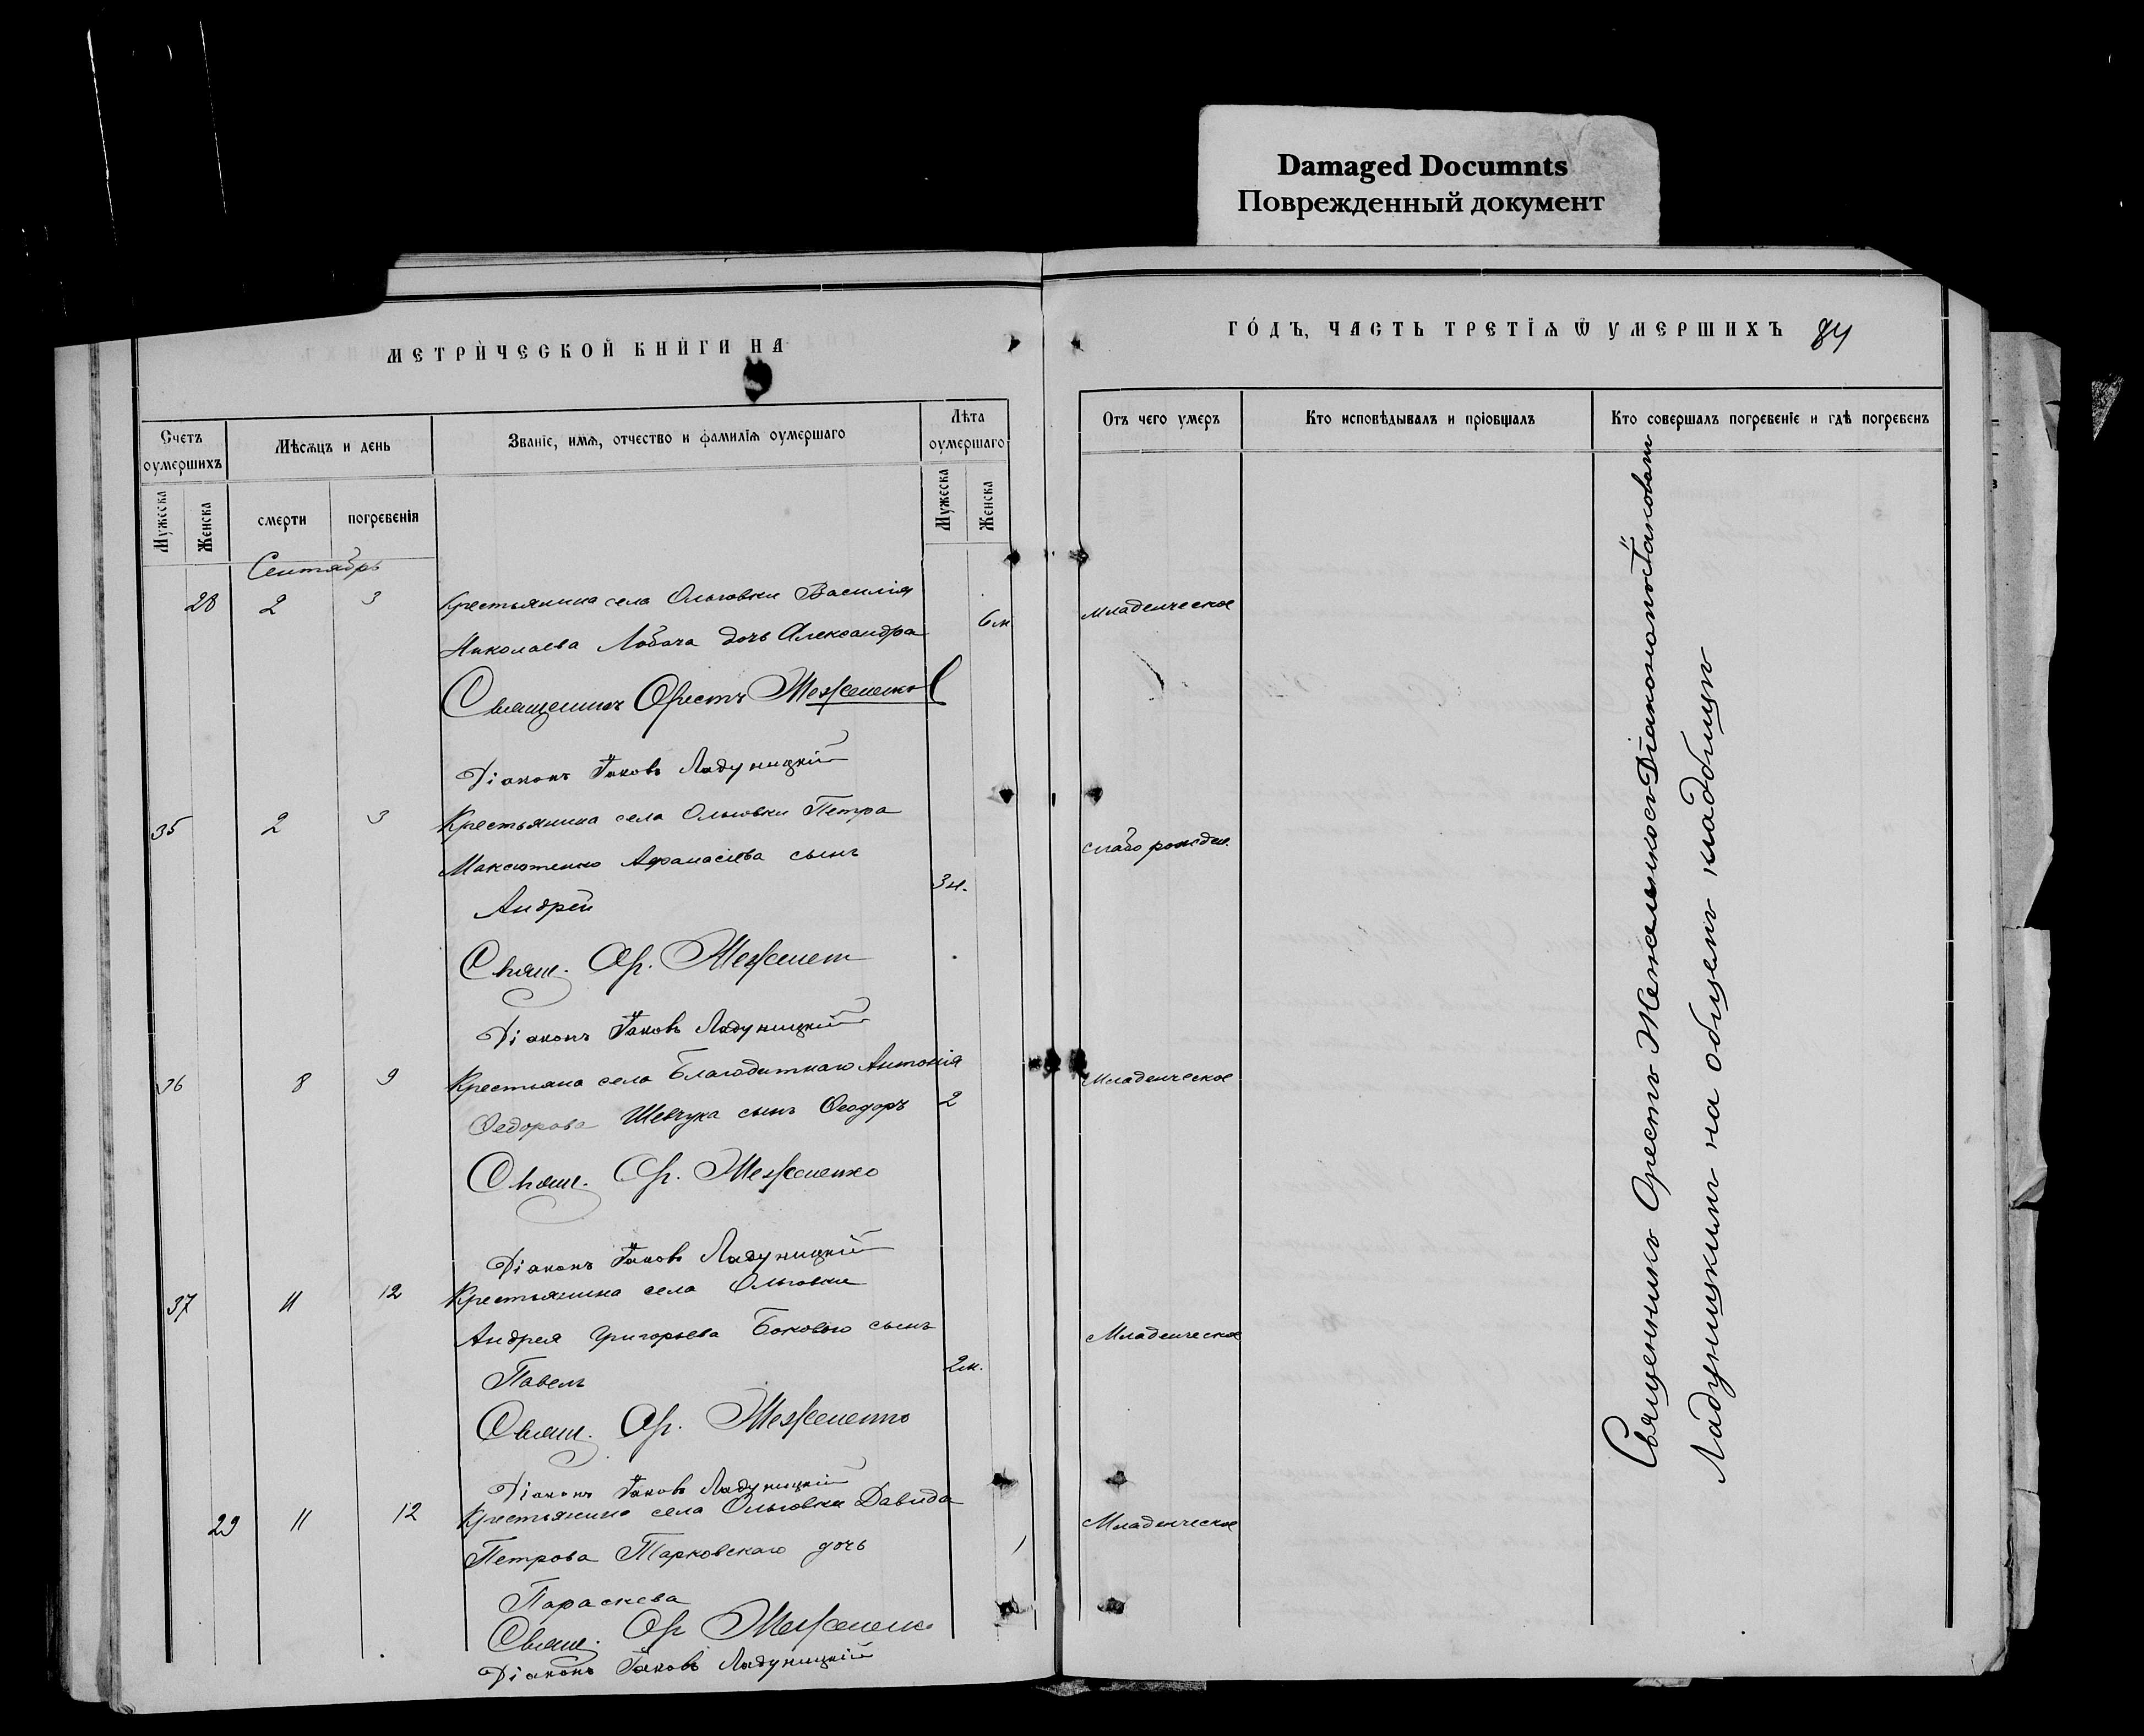 Damaged Documnts
Поврежденный документ
МЕТРИЧЕСКОЙ КНИГИ НА
ГОДЪ, ЧАСТЬ ТРЕТІѦ Ѿ УМЕРШИХЪ 84
Счетъ оумершихъ
Мѣсѧцъ и день
Званіе, имѧ, отчество и фамиліѧ оумершаго
Лѣта оумершаго
Мужеска
Женска
смерти
погребенія
Мужеска
Женска
Отъ чего умеръ
Кто исповѣдывалъ и пріобщалъ
Кто совершалъ погребеніе и гдѣ погребенъ
Сентябрь
28 2 3 Крестьянина села Ольговки Василія
Николаева Лобача дочь Александра 6 м Младенческое
Священникъ Орестъ
Діаконъ Іаковъ Ладуницкій
35 2 3 Крестьянина села Ольговки Петра
Максютенко Афанасіева сынъ слабо рожден.
Андрей 3 н.
Свящ. Ор.
Діаконъ Іаковъ Ладуницкій
36 8 9 Крестьяна села Благодатнаго Антонія Младенческое
Федорова Шевчука сынъ Феодоръ 2
Свящ. Ор.
Діаконъ Іаковъ Ладуницкій
37 11 12 Крестьянина села Ольговки
Андрея Григорьева сынъ Младенческое
Павелъ 2 м.
Свящ. Ор.
Діаконъ Іаковъ Ладуницкій
29 11 12 Крестьянина села Ольговки Давида Младенческое
Петрова Тарковскаго дочь 1
Параскева
Свящ. Ор
Діаконъ Іаковъ Ладуницкій
Священникъ Орестъ съ Діакономъ Іаковомъ
Ладуницкимъ на общемъ кладбищѣ